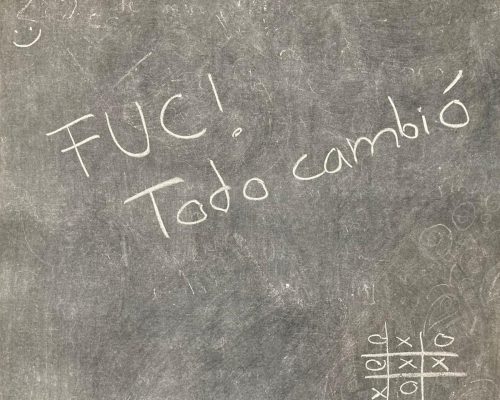 FUC!
Todo cambió
O X O
O X X
X O